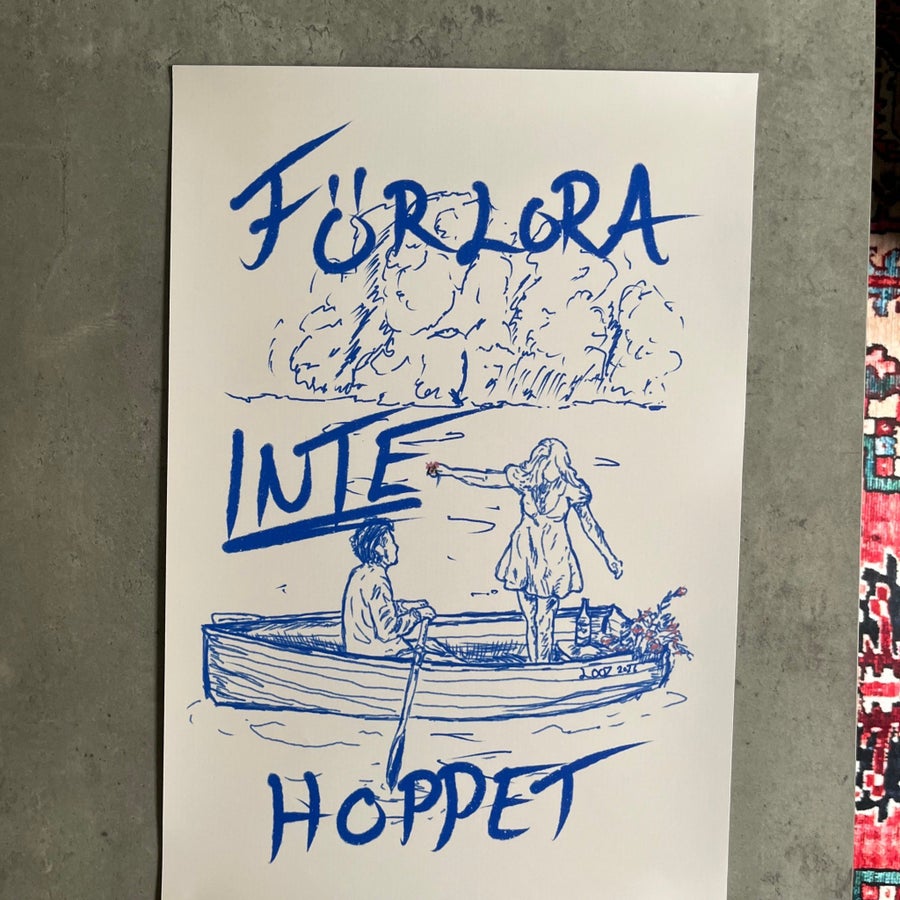 FÖRLORA
INTE
LOOZ 2026
HOPPET